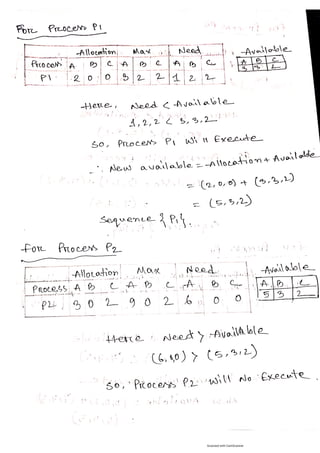 For Process P1
Allocation Max Need Available
Process A B C A B C A B C A B C
P1 2 0 0 3 2 2 1 2 2 3 3 2
Here, Need < Available
1,2,2 < 3,3,2
So, Process P1 will Execute
∴ New available = Allocation + Available
= (2,0,0) + (3,3,2)
= (5,3,2)
Sequence {P1}.
For Process P2
Allocation Max Need Available
Process A B C A B C A B C A B C
P2 3 0 2 9 0 2 6 0 0 5 3 2
Here Need > Available
(6,0,0) > (5,3,2)
So, Process P2 will No Execute.
Scanned with CamScanner